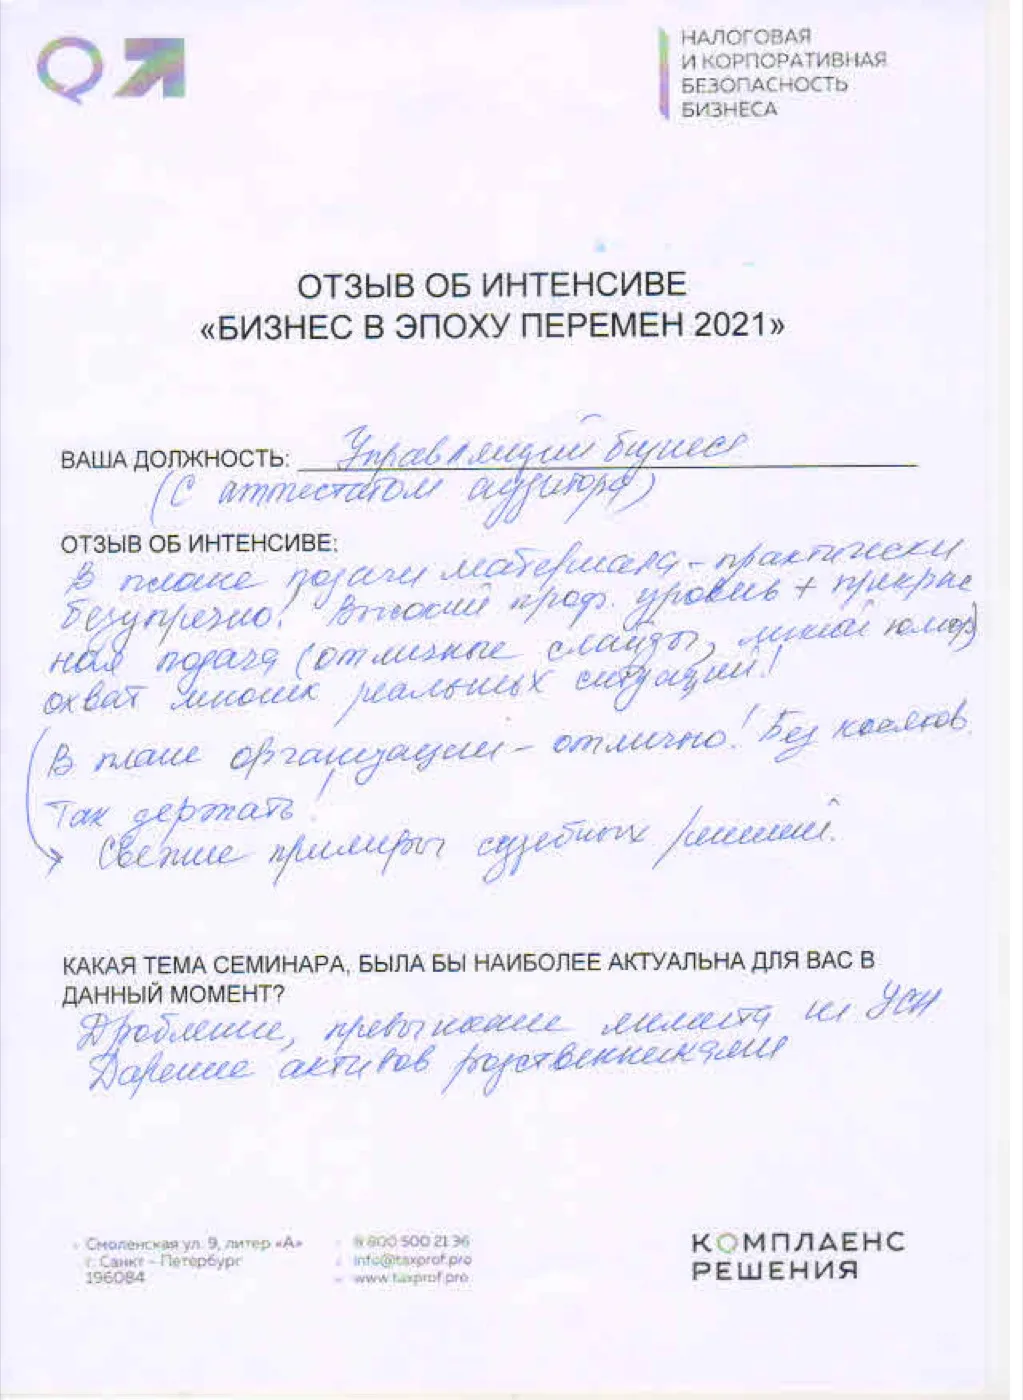 НАЛОГОВАЯ
И КОРПОРАТИВНАЯ
БЕЗОПАСНОСТЬ
БИЗНЕСА
ОТЗЫВ ОБ ИНТЕНСИВЕ
«БИЗНЕС В ЭПОХУ ПЕРЕМЕН 2021»
ВАША ДОЛЖНОСТЬ: Управляющий бизнес
(С аттестатом аудитора)
ОТЗЫВ ОБ ИНТЕНСИВЕ:
В плане подачи материала - практически
безупречно! Высокий проф. уровень + прекрас
ная подача (отличные слайды, юмор)
охват многих реальных ситуаций!
В плане организации - отлично! Без косяков.
Так держать!
Свежие примеры судебных решений.
КАКАЯ ТЕМА СЕМИНАРА, БЫЛА БЫ НАИБОЛЕЕ АКТУАЛЬНА ДЛЯ ВАС В
ДАННЫЙ МОМЕНТ?
Дробление, превышение лимита на УСН
Дарение активов родственниками
Смоленская ул. 9, литер «А»
г. Санкт - Петербург
196084
8 800 500 21 36
info@taxprof.pro
www.taxprof.pro
КОМПЛАЕНС
РЕШЕНИЯ